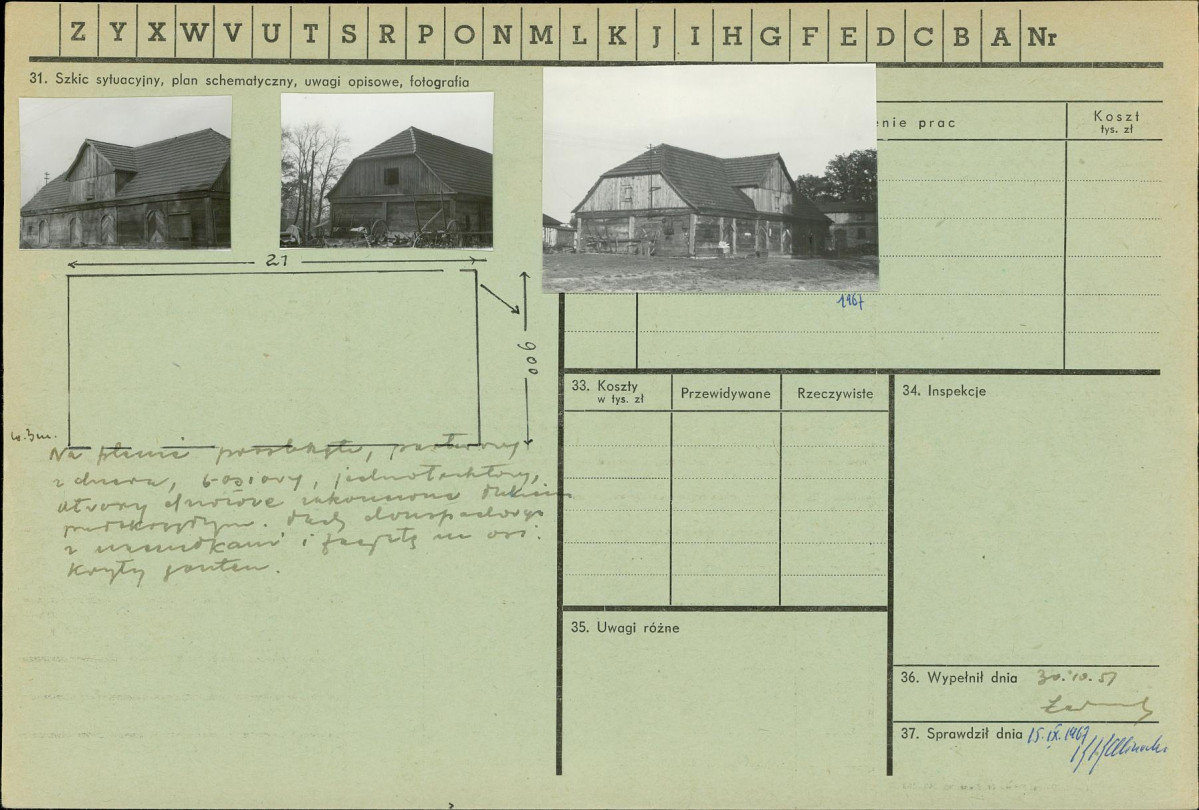 Z Y X W V U T S R P O N M L K J I H G F E D C B A Nr
31. Szkic sytuacyjny, plan schematyczny, uwagi opisowe, fotografia
enie prac
Koszt
tys. zł
21
900
1967
w. 3 m.
Na planie prostokąta, parterowy
z drewna, 6-osiowy, jednotraktowy,
otwory drzwiowe zakończone łukiem
nadkrytym. Dach dwuspadowy
z naczółkami i facjatą na osi.
kryty gontem.
33. Koszty
w tys. zł
Przewidywane
Rzeczywiste
34. Inspekcje
35. Uwagi różne
36. Wypełnił dnia 30.10.51
37. Sprawdził dnia 15.IX.1967